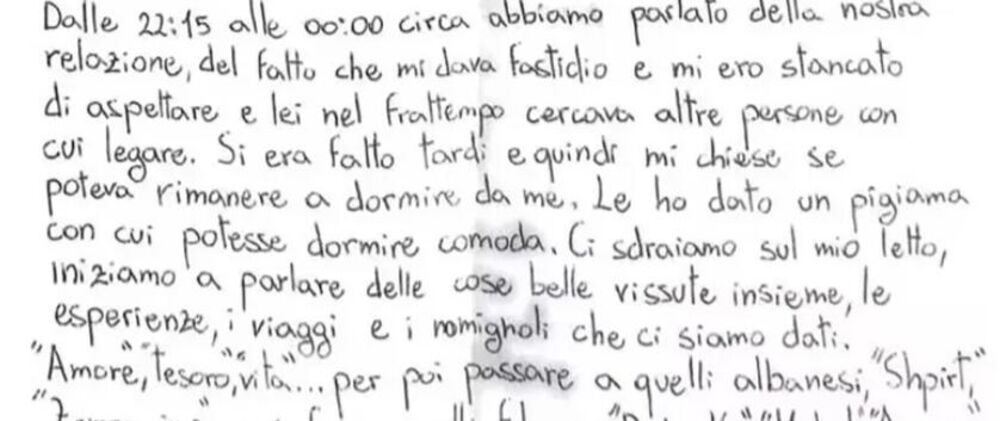 Dalle 22:15 alle 00:00 circa abbiamo parlato della nostra
relazione, del fatto che mi dava fastidio e mi ero stancato
di aspettare e lei nel frattempo cercava altre persone con
cui legare. Si era fatto tardi e quindi mi chiese se
poteva rimanere a dormire da me. Le ho dato un pigiama
con cui potesse dormire comoda. Ci sdraiamo sul mio letto,
iniziamo a parlare delle cose belle vissute insieme, le
esperienze, i viaggi e i nomignoli che ci siamo dati.
"Amore", "tesoro", "vita"... per poi passare a quelli albanesi, "Shpirt",